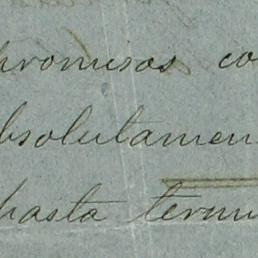 promisos co
bsolutamen
hasta termi